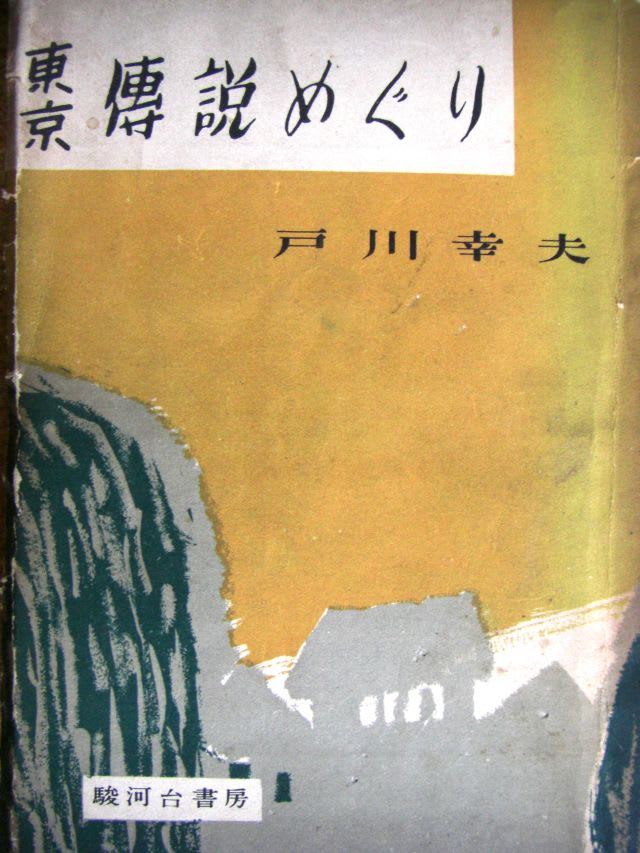 東京 傳説めぐり
戸川幸夫
駿河台書房